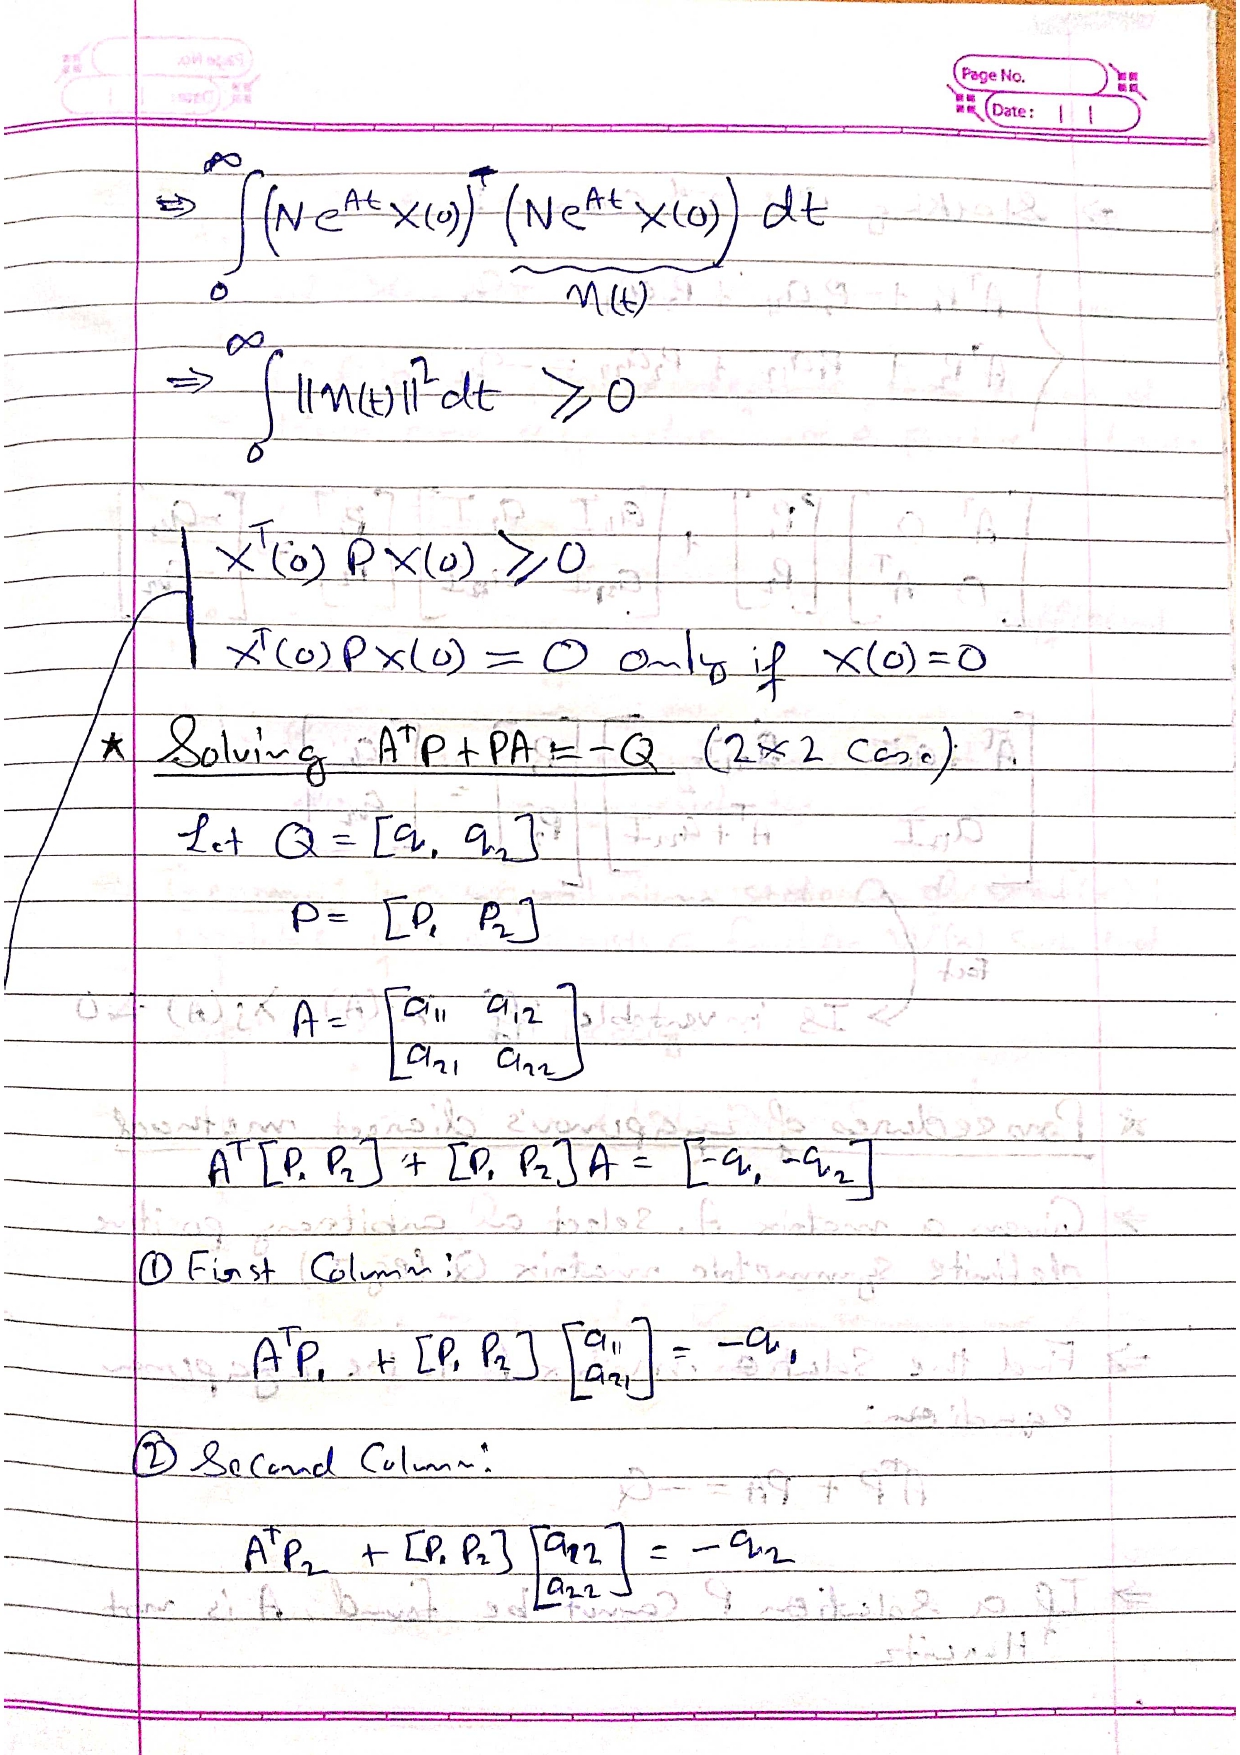 Page No.
Date:
⇒ ∫₀^∞ (N e^{At} X(0))^T (N e^{At} X(0)) dt
n(t)
⇒ ∫₀^∞ ||n(t)||² dt ≥ 0
X^T(0) P X(0) ≥ 0
X^T(0) P X(0) = 0 only if X(0) = 0
* Solving A^T P + PA = -Q (2×2 Case):
Let Q = [q₁ q₂]
P = [P₁ P₂]
A = [a₁₁ a₁₂
a₂₁ a₂₂]
A^T [P₁ P₂] + [P₁ P₂] A = [-q₁ -q₂]
① First Column:
A^T P₁ + [P₁ P₂] [a₁₁
a₂₁] = -q₁
② Second Column:
A^T P₂ + [P₁ P₂] [a₁₂
a₂₂] = -q₂